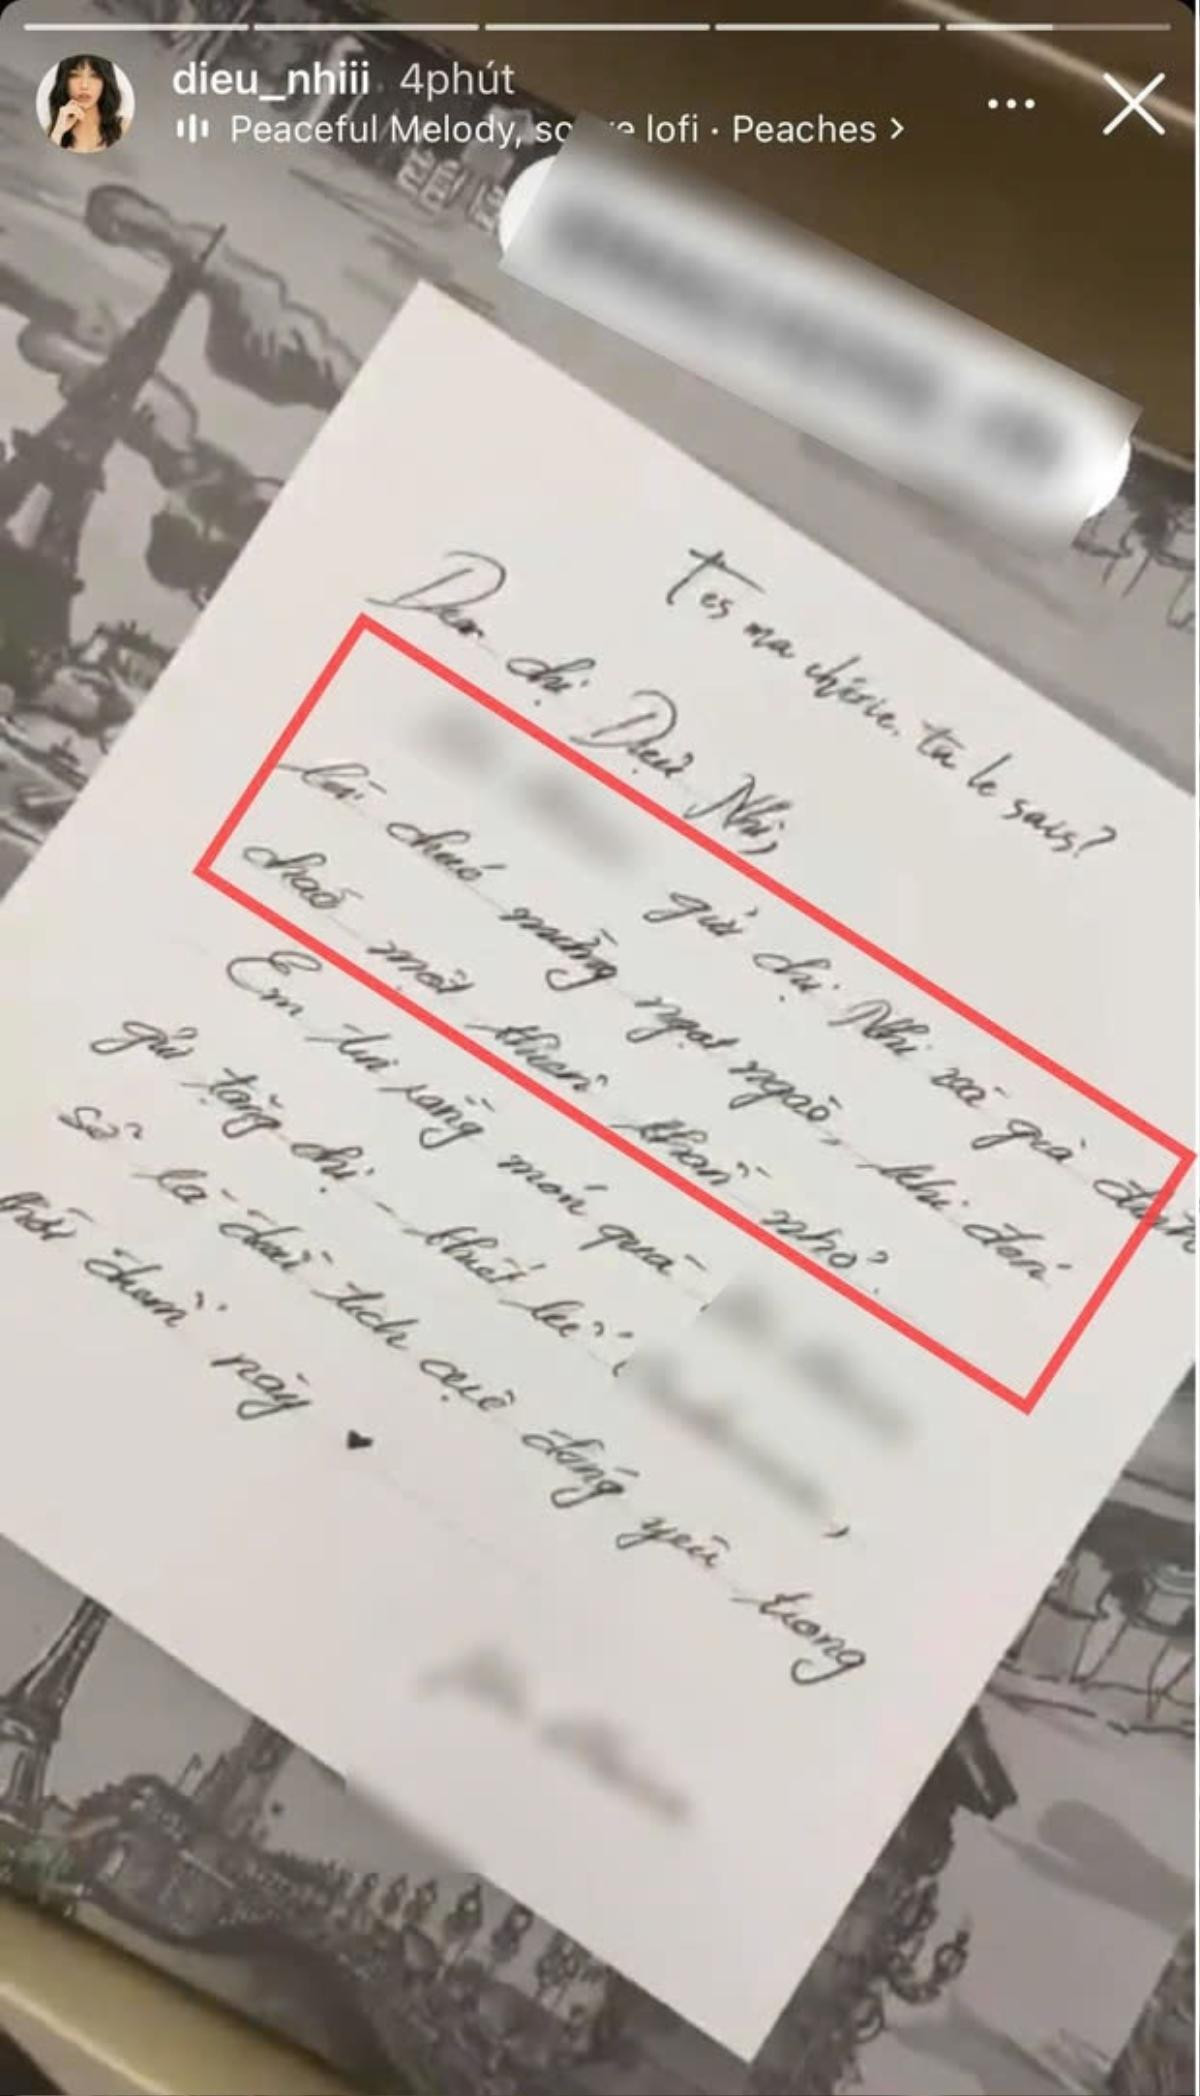 dieu_nhiii 4phút
Peaceful Melody, lofi · Peaches >
T'es ma chérie, tu le sais?
Dear chị Diệu Nhi,
gửi chị Nhi và gia đình
lời chúc mừng ngọt ngào, khi đón
chào một thiên thần nhỏ.
Em tin rằng món quà
gửi tặng chị - thiết kế
sẽ là đại tích cực đáng yêu trong
thời điểm này ♥